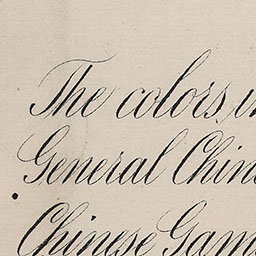 The colors
General Chin
Chinese Gam